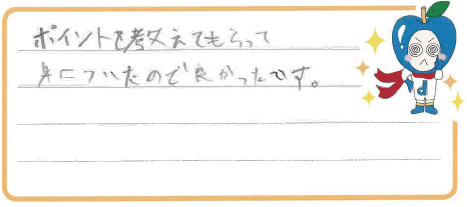 ポイントを考えてもらって
身についたので良かったです。
d